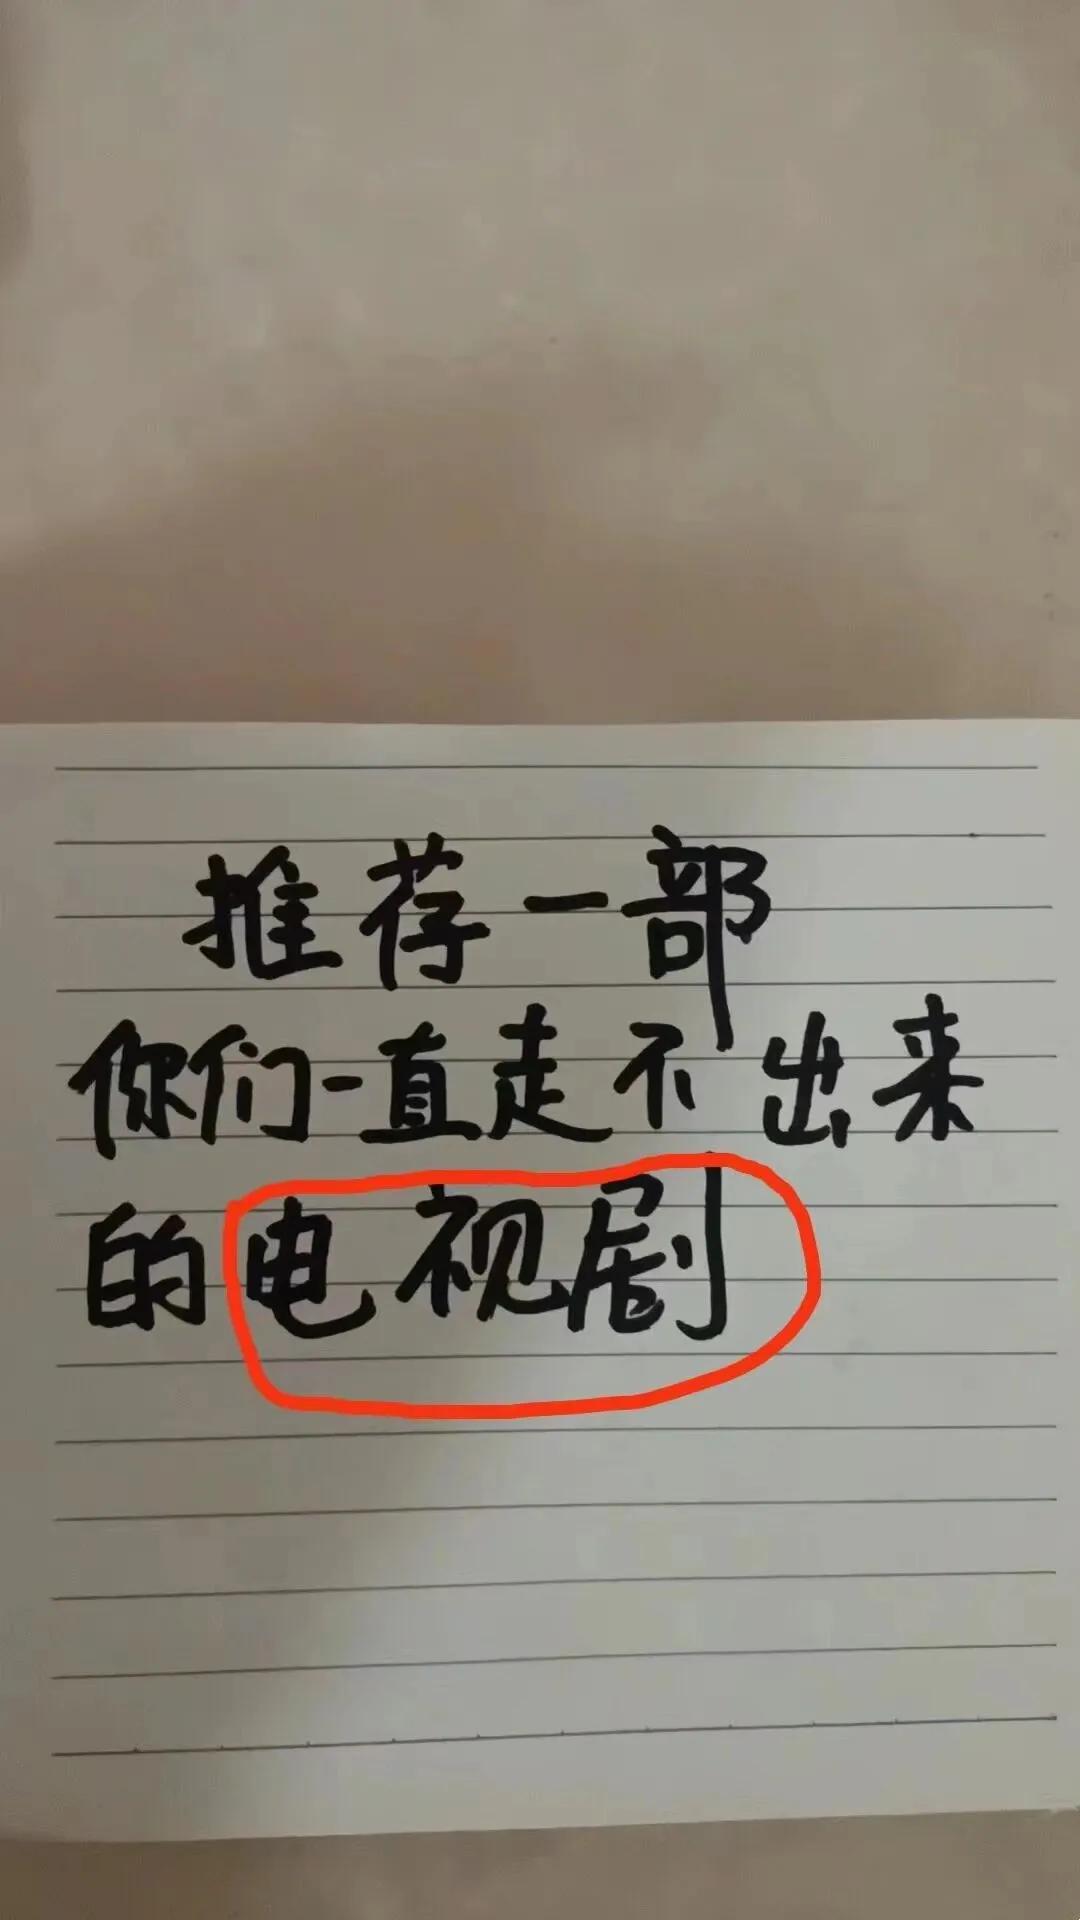 推荐一部
你们一直走不出来
的电视剧